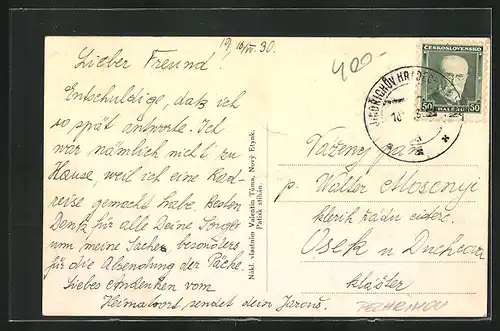 19 16/VII. 30.
400-
Lieber Freund!
Entschuldige, daß ich
so spät antworte. Ich
war nämlich nicht zu
Hause, weil ich eine Rad-
reise gemacht habe. Besten
Dank für alle Deine Sorgen
um meine Sache, besonders
für die Absendung der Päcke.
Liebes Andenken vom
Heimatort sendet dein Jarouš.
Nákl. vlastním Valentin Tůma, Nový Etynk.
Patisk stíhán.
ČESKOSLOVENSKO
50 HALÉŘŮ 50
JINDŘICHŮV HRADEC
Vážený pan
p. Walter Mosonyi
klerik řádu cister.
Osek u Duchcova
klášter
PECHRIHOV